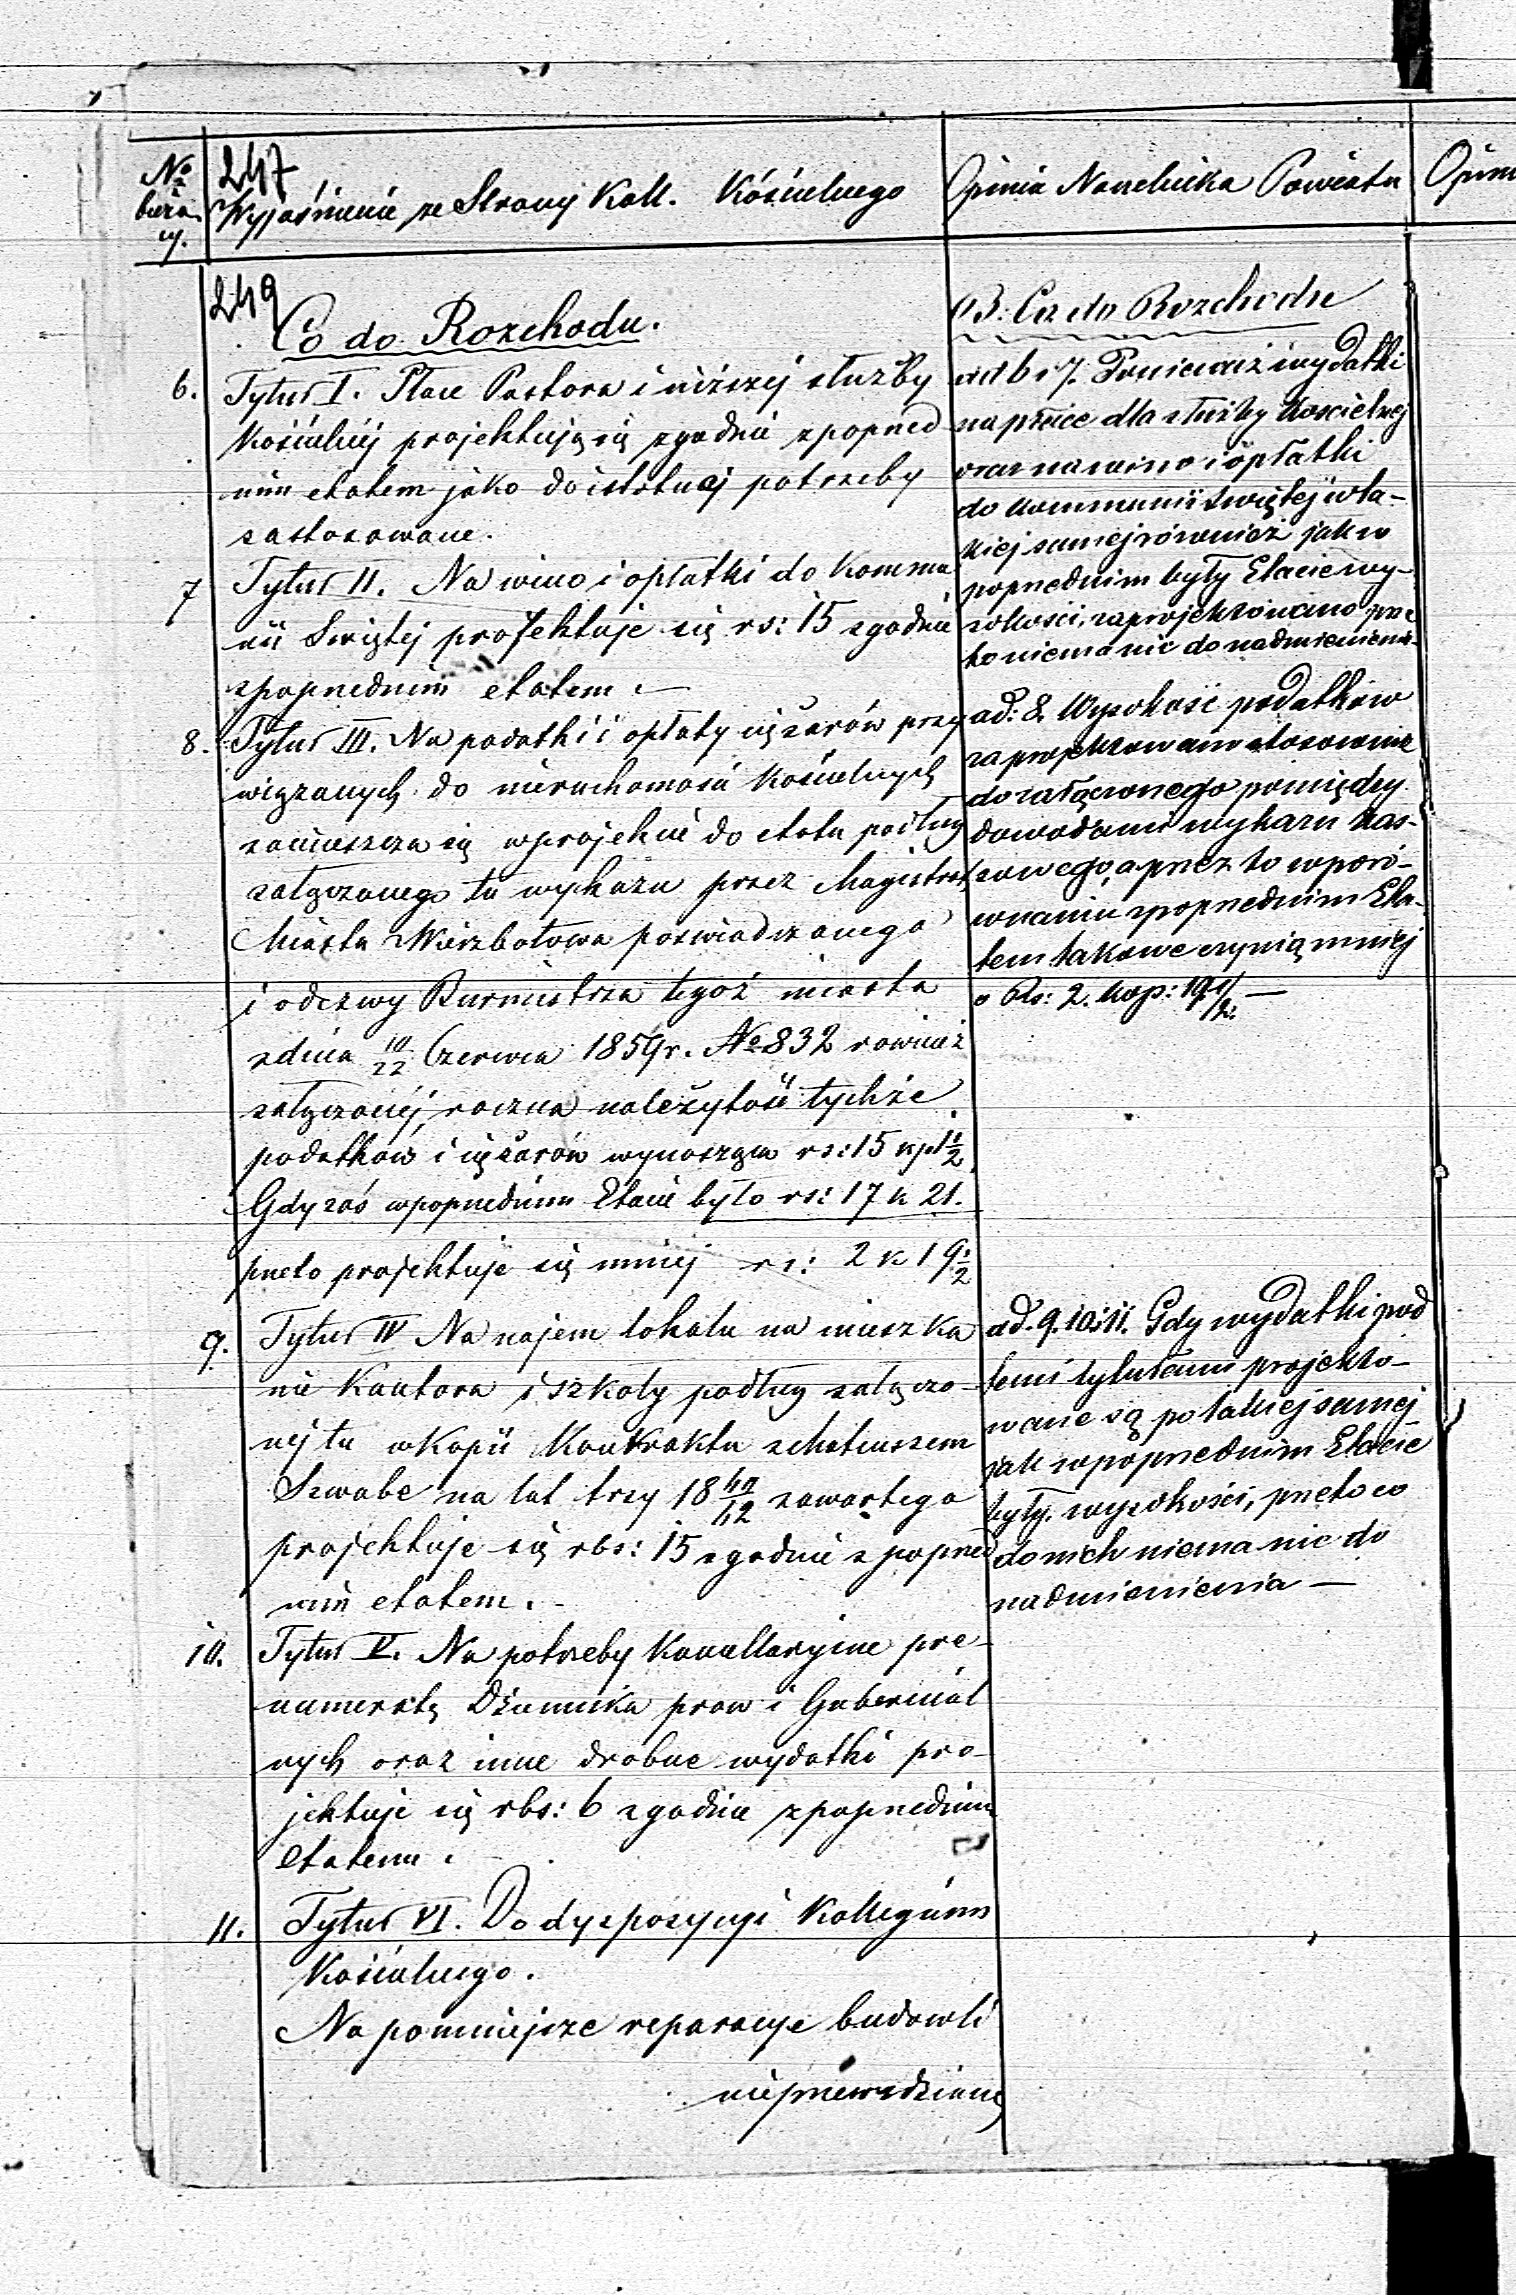 247
№ bieżą- cy.
Wyjaśnienie ze Strony Koll. Kościelnego
Opinia Naczelnika Powiatu
Opin
249
Co do Rozchodu.
6. Tytuł I. Płace Pastora i niższej służby
Kościelnej projektują się zgodnie z poprzed
nim etatem jako do istotnej potrzeby
zastosowane.
7 Tytuł II. Na wino i opłatki do Kommu
nii Swiętej projektuje się rs: 15 zgodnie
z poprzednim etatem.—
8. Tytuł III. Na podatki i opłaty ciężarów przy
wiązanych do nieruchomości Kościelnych
zamieszcza się w projekcie do etatu podług
załączonego tu wykazu przez Magistrat
Miasta Wierzbołowa poswiadczonego
i odezwy Burmistrza tegoż miasta
z dnia 10/22 Czerwca 1859 r. № 832 rownież
załączonéj, roczna należytość tychże
podatków i ciężarów wynosząca rs: 15 kp 1 1/2
Gdy zaś w poprzednim Etacie było rs: 17 k 21.
przeto projektuje się mniej rs: 2 k 19 1/2
9. Tytuł IV Na najem lokalu na mieszka
nie Kantora i szkoły podług załączo-
nej tu w Kopii Kontraktu z Mateuszem
Szwabe na lat trzy 18 zawartego
projektuje się rbs: 15 zgodnie z poprzed
nim etatem.-
10. Tytuł V. Na potrzeby Kancellaryjne pre-
numeratę Dziennika praw i Gubernial
nych oraz inne drobne wydatki pro-
jektuje się rbs: 6 zgodnie z poprzednim
etatem.
11. Tytuł VI. Do dyspozycyi Kollegium
Kościelnego.
Na pomniejsze reparacye budowli
nieprzewidziane
B. Co do Rozchodu
ad 6 i 7. Ponieważ wydatki
na płace dla służby Koscielnej
oraz na wino i opłatki
do kommunii Swiętej w ta-
kiej samej równiez jak w
poprzednim były Etacie wy-
sokości, zaprojektowano prze
to niema nic do nadmienienia.
ad: 8. Wysokość podatków
zaprojektowano stosownie
do załączonego pomiędzy
dowodami wykazu kas-
sowego, a przez to w poró-
wnaniu z poprzednim Eta-
tem takowe czynią mniej
o Rs: 2. kop: 19 1/2. —
ad. 9. 10. i 11. Gdy wydatki pod
temi tytułami projekto-
wane są po takiej samej
jak w poprzednim Etacie
były wysokości, przeto co
do nich niema nic do
nadmienienia —